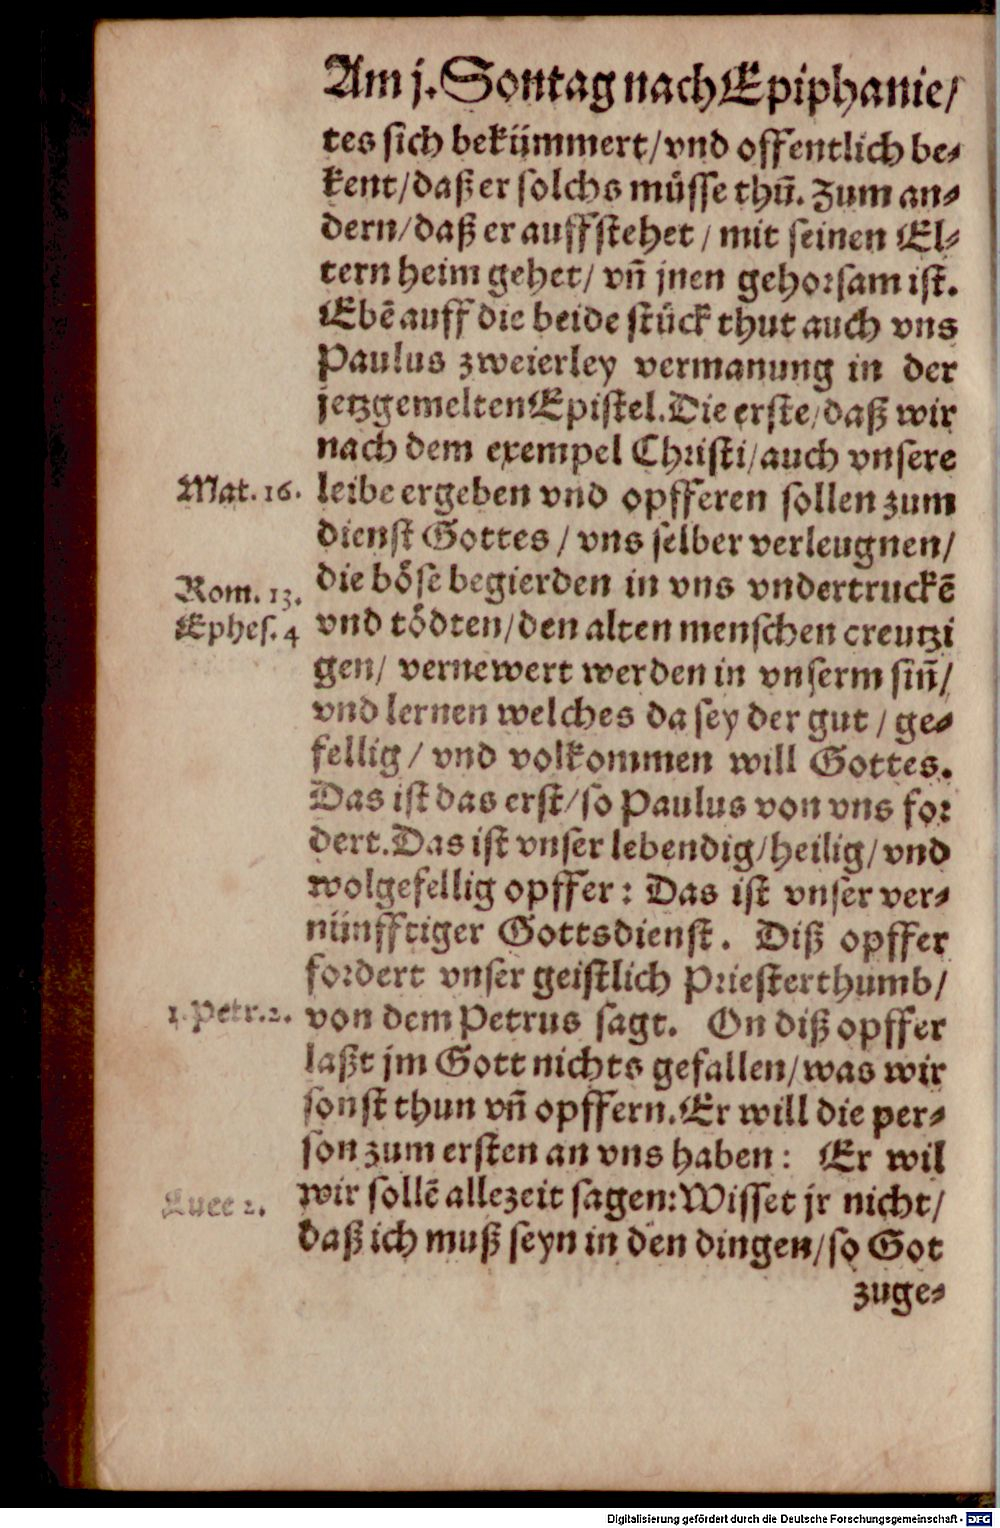 Am j. Sontag nach Epiphanie/
tes sich bekümmert/vnd offentlich be-
kent/daß er solchs müsse thuñ. Zum an-
dern/daß er auffstehet/ mit seinen El-
tern heim gehet/ vñ jnen gehorsam ist.
Ebē auff die beide stück thut auch vns
Paulus zweierley vermanung in der
jetzgemelten Epistel. Die erste/daß wir
nach dem exempel Christi/auch vnsere
Mat. 16. leibe ergeben vnd opfferen sollen zum
dienst Gottes/ vns selber verleugnen/
Rom. 13. die böse begierden in vns vndertruckē
Ephes. 4 vnd tödten/den alten menschen creutzi
gen/ vernewert werden in vnserm siñ/
vnd lernen welches da sey der gut/ ge-
fellig/ vnd volkommen will Gottes.
Das ist das erst/so Paulus von vns for
dert. Das ist vnser lebendig/heilig/vnd
wolgefellig opffer: Das ist vnser ver-
nünfftiger Gottsdienst. Diß opffer
fordert vnser geistlich Priesterthumb/
1. Petr. 2. von dem Petrus sagt. On diß opffer
laßt jm Gott nichts gefallen/was wir
sonst thun vñ opffern. Er will die per-
son zum ersten an vns haben: Er wil
Luce 2. wir sollē allezeit sagen: Wisset jr nicht/
daß ich muß seyn in den dingen/so Got
zuge-
Digitalisierung gefördert durch die Deutsche Forschungsgemeinschaft - DFG